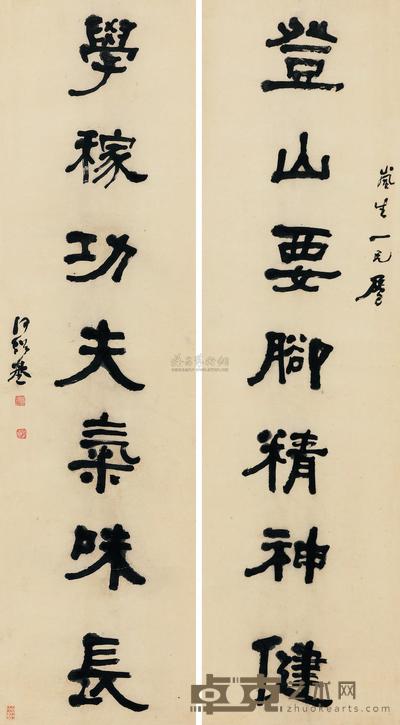 嵐生一兄屬
登山要腳精神健
學稼功夫氣味長
何紹基
卓克艺术网
zhuokearts.com